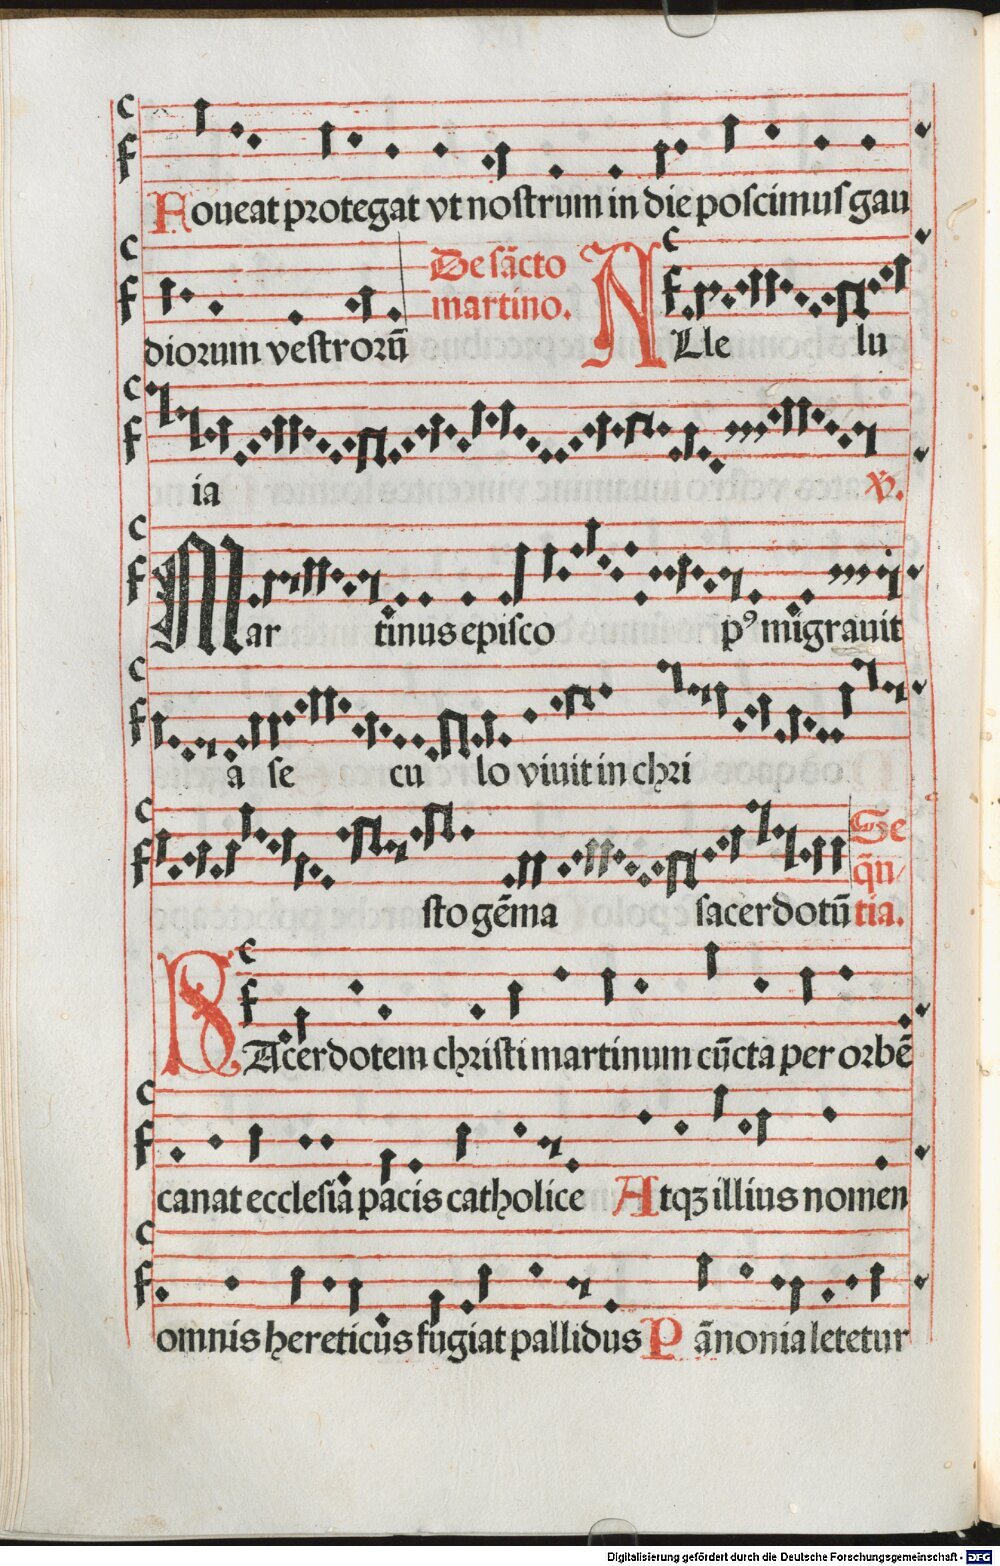 Foueat protegat vt nostrum in die poscimus gau
diorum vestrorū De sācto martino. ALle lu
ia v.
Mar tinus episco pꝰ migrauit
a se cu lo viuit in chri
sto gēma sacerdotū Seq̄n/tia.
SAcerdotem christi martinum cūcta per orbē
canat ecclesia pacis catholice Atqꝫ illius nomen
omnis hereticus fugiat pallidus Pānonia letetur
Digitalisierung gefördert durch die Deutsche Forschungsgemeinschaft - DFG